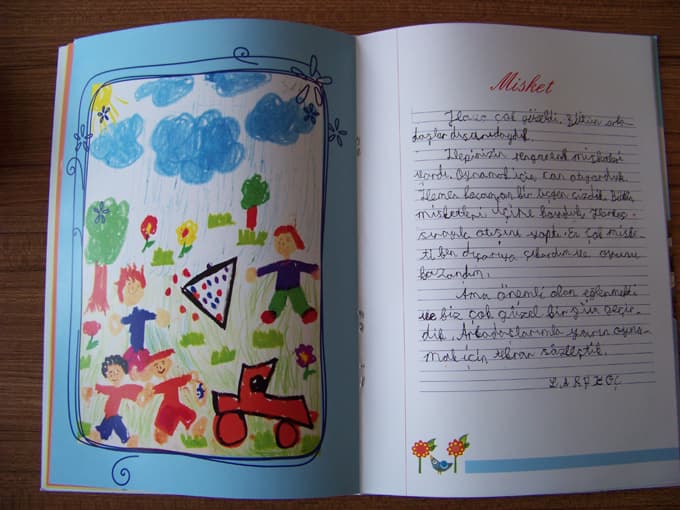 Misket
Hava çok güzeldi. Bütün arka
daşlar dışarıdaydık.
Hepimizin rengarenk misketleri
vardı. Oynamak için can atıyorduk.
Hemen kocaman bir üçgen çizdik. Bütün
misketleri içine koyduk. Herkes
sırayla atışını yaptı. En çok miske-
ti ben dışarıya çıkardım ve oyunu
kazandım.
Ama önemli olan eğlenmekti
ve biz çok güzel bir gün geçir-
dik. Arkadaşlarımla yarın oyna-
mak için tekrar sözleştik.